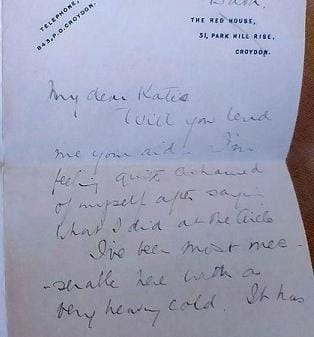 TELEPHONE,
843, P.O. CROYDON.
THE RED HOUSE,
31, PARK HILL RISE,
CROYDON.
My dear Katie
Will you lend
me your aid. I'm
feeling quite ashamed
of myself after saying
what I did at the
I've been most mee-
-serable here with a
very heavy cold. It has